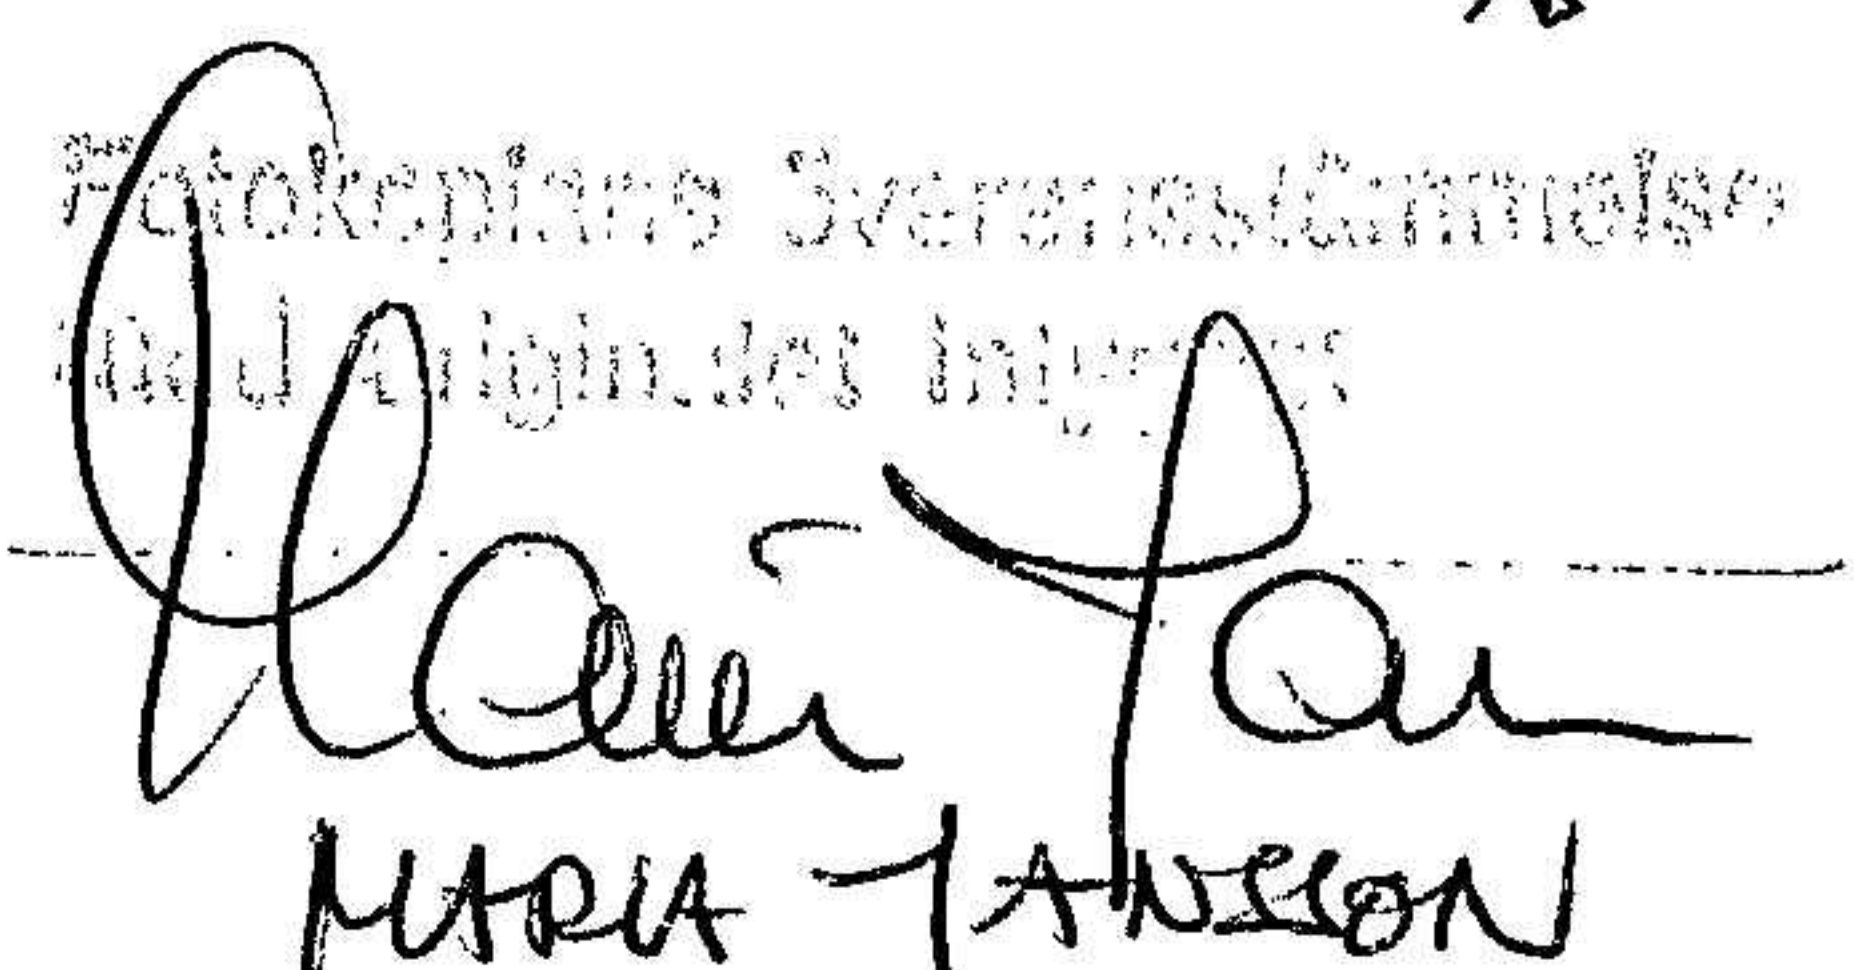 Fotokopians Överensstämmelse
med originalet intygas
Maria Jan
MARIA JANSSON